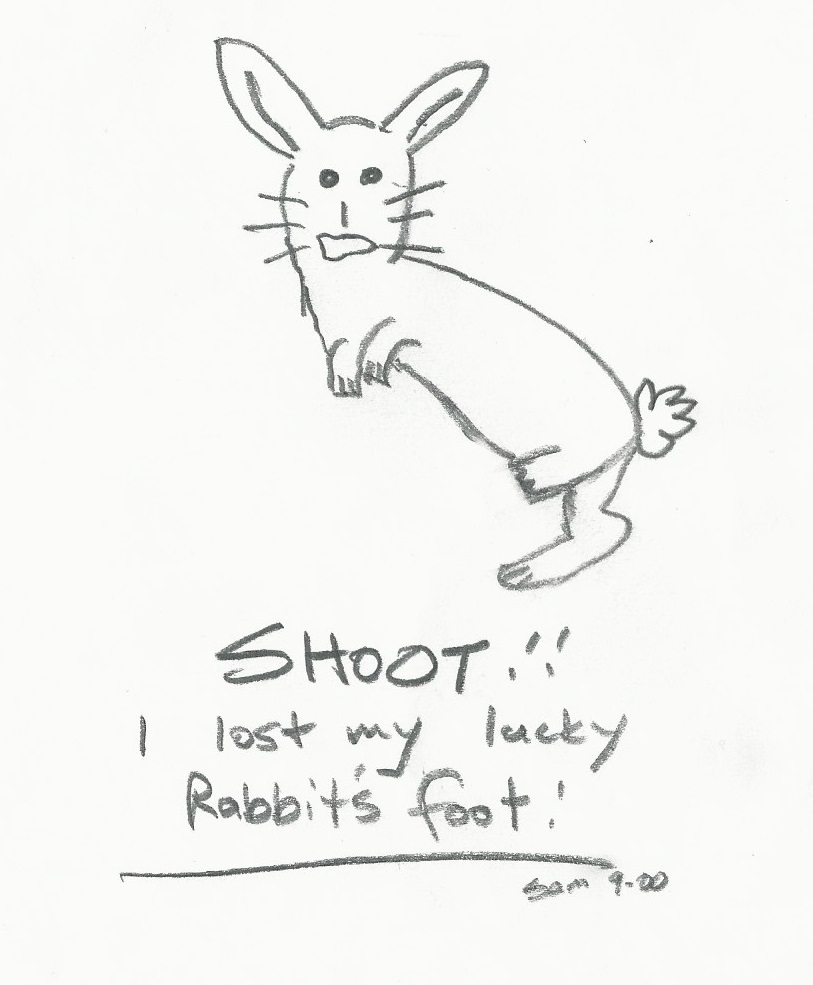 SHOOT.!!
I lost my lucky
Rabbit's foot!
Sam 9-00